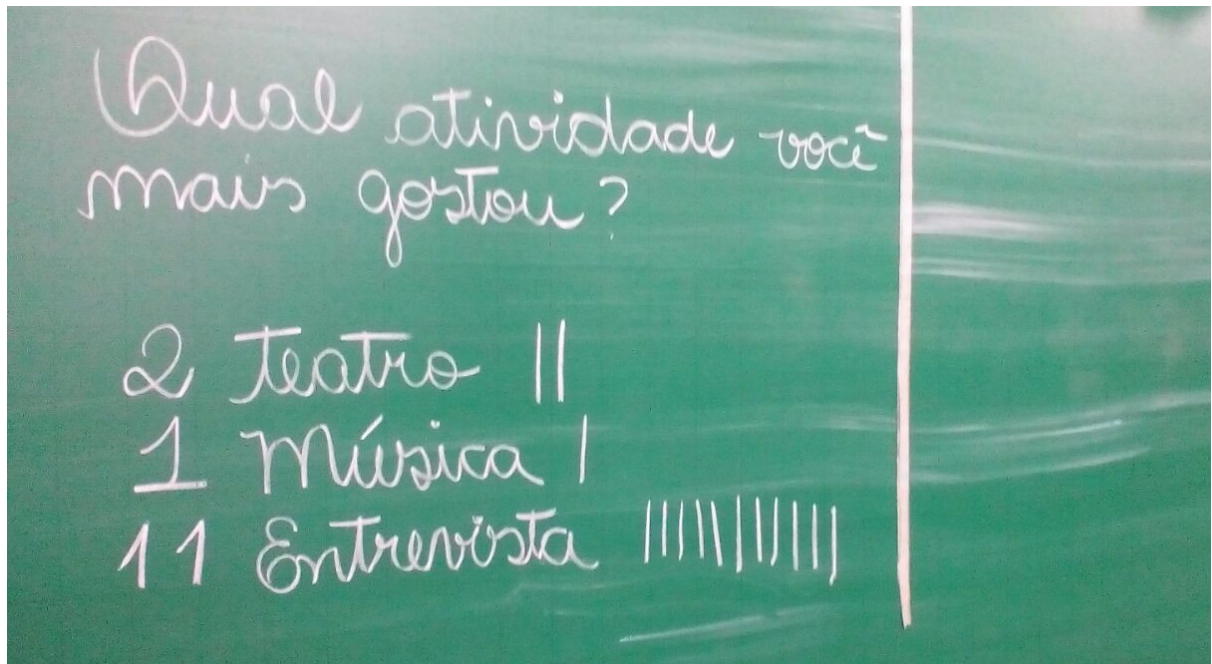 Qual atividade você
mais gostou?
2 Teatro ||
1 Música |
11 Entrevista |||||||||||